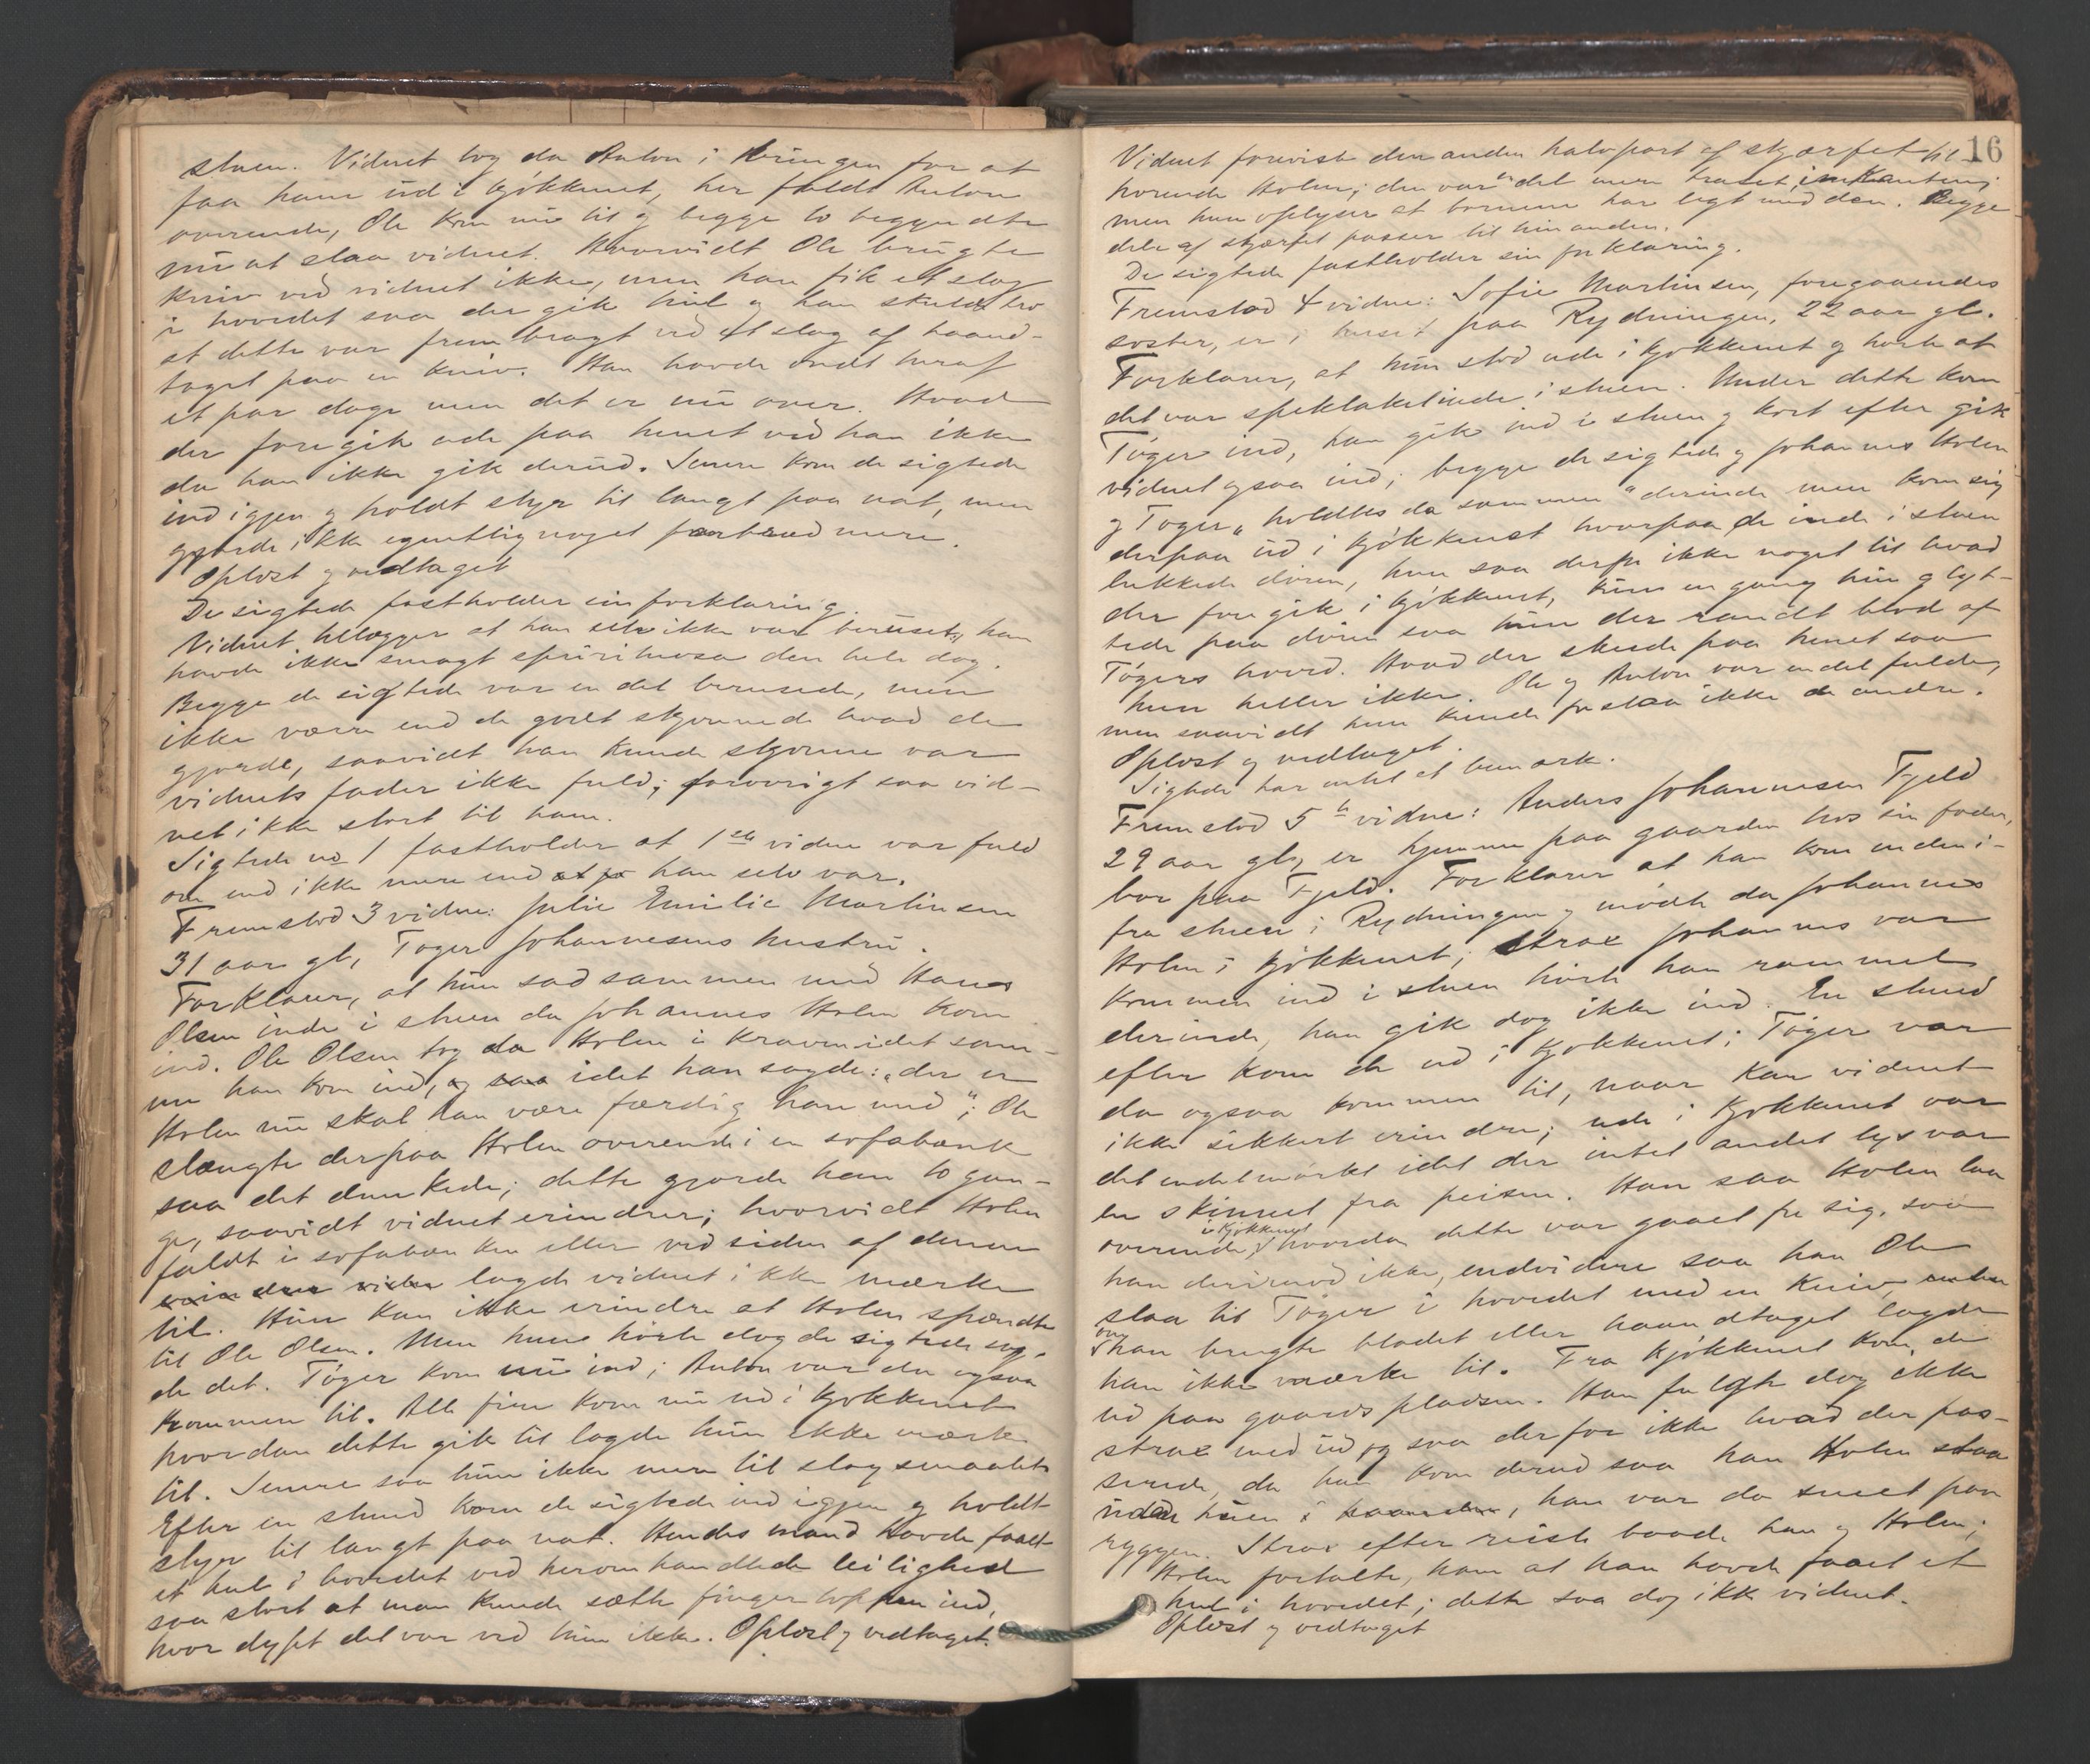 stuen. Vidnet tog da Anton i kringen for at
faa ham ud i kjøkkenet, her faldt Anton
overende, Ole kom nu til og begge to begyndte
nu at slaa vidnet. Hvorvidt Ole brugte
kniv ved vidnet ikke, men han fik et slag
i hovedet saa der gik hul og han skulde tro
at dette var frembragt ved et slag af haand-
taget paa en kniv. Han havde ondt heraf
et par dage men det er nu over. Hvad
der foregik ude paa tunet ved han ikke
da han ikke gik derud. Senere kom de sigtede
ind igjen og holdt styr til langt paa nat, men
gjorde ikke egentlig noget mere.
Oplæst og vedtaget
De sigtede fastholder sin forklaring.
Vidnet tillægger at han selv ikke var beruset, han
havde ikke smagt spirituosa den hele dag.
Begge de sigtede var en del berusede, men
ikke værre end de godt skjønnede hvad de
gjorde, saavidt han kunde skjønne var
vidnets fader ikke fuld; forøvrigt saa vid-
net ikke stort til ham.
Sigtede no 1 fastholder at 1ste vidne var fuld
om end ikke mere end han selv var.
Fremstod 3 vidne: Julie Emilie Martinsen
31 aar gl, Tøger Johannesens hustru.
Forklarer, at hun sad sammen med Hans
Olsen inde i stuen da Johannes Holen kom
ind. Ole Olsen tog da Holen i kraven idet sam-
me han kom ind, og saa idet han sagde: "der er
Holen nu skal han være færdig han med"; Ole
slængte derpaa Holen overende i en sofabænk
saa det dunkede; dette gjorde han to gan-
ge, saavidt vidnet erindrer; hvorvidt Holen
faldt i sofabænken eller ved siden af denne
erindrer vidne lagde vidnet ikke mærke
til. Hun kan ikke erindre at Holen spændte
til Ole Olsen. Men hun hørte dog de sigtede sag-
de det. Tøger kom nu ind; Anton var da ogsaa
kommen til. Alle fire kom nu ud i kjøkkenet
hvordan dette gik til lagde hun ikke mærke
til. Senere saa hun ikke mere til slagsmaalet.
Efter en stund kom de sigtede ind igjen og holdt
styr til langt paa nat. Hendes mand havde faaet
et hul i hovedet ved heromhandlede leilighed
saa stort at man kunde sætte fingertoppen ind,
hvor dybt det var ved hun ikke. Oplæst og vedtaget.
16
Vidnet foreviste den anden halvpart af skjærfet til-
hørende Holen; den var en del mere traset i kanten;
men hun oplyser at børnene har legt med den. Begge
dele af skjærfet passer til hinanden.
De sigtede fastholder sin forklaring.
Fremstod 4 vidne: Sofie Martinsen, foregaaendes
søster, er i huset paa Rydningen, 22 aar gl.
Forklarer, at hun stod ude i kjøkkenet og hørte at
det var spektakel inde i stuen. Under dette kom
Tøger ind, han gik ind i stuen og kort efter gik
vidnet ogsaa ind; begge de sigtede og Johannes Holen
og Tøger "holdtes da sammen" derinde men kom sig
derpaa ud i kjøkkenet hvorpaa de inde i stuen
lukkede døren, hun saa derfor ikke noget til hvad
der foregik i kjøkkenet, kun en gang hun glyt-
tede paa døren saa hun der randt blod af
Tøgers hoved. Hvad der skede paa tunet saa
hun heller ikke. Ole og Anton var en del fulde,
men saavidt hun kunde forstaa ikke de andre.
Oplæst og vedtaget.
Sigtede har intet at bemærke.
Fremstod 5te vidne: Anders Johannesen Fjeld
29 aar gl, er hjemme paa gaarden hos sin fader,
bor paa Fjeld. Forklarer at han kom inden i-
fra stuen i Rydningen og mødte da Johannes
Holen i kjøkkenet; strax Johannes var
kommen ind i stuen hørte han rammel
derinde, han gik dog ikke ind. En stund
efter kom de ud i kjøkkenet; Tøger var
da ogsaa kommen til, naar kan vidnet
ikke sikkert erindre; ude i kjøkkenet var
det en del mørkt idet der intet andet lys var
en skinnet fra peisen. Han saa Holen laa
overende i kjøkkenet, hvordan dette var gaaet for sig, saa
han derimod ikke, endvidere saa han Ole
slaa til Tøger i hovedet med en kniv, enten
om han brugte bladet eller haandtaget lagde
han ikke mærke til. Fra kjøkkenet kom de
ud paa gaardspladsen. Han fulgte dog ikke
strax med ud og saa derfor ikke hvad der pas-
serede, da han kom derud saa han Holen staa
uden huen i haanden, han var da sneet paa
ryggen. Strax efter reiste baade han og Holen;
Holen fortalte ham at han havde faaet et
hul i hovedet; dette saa dog ikke vidnet.
Oplæst og vedtaget